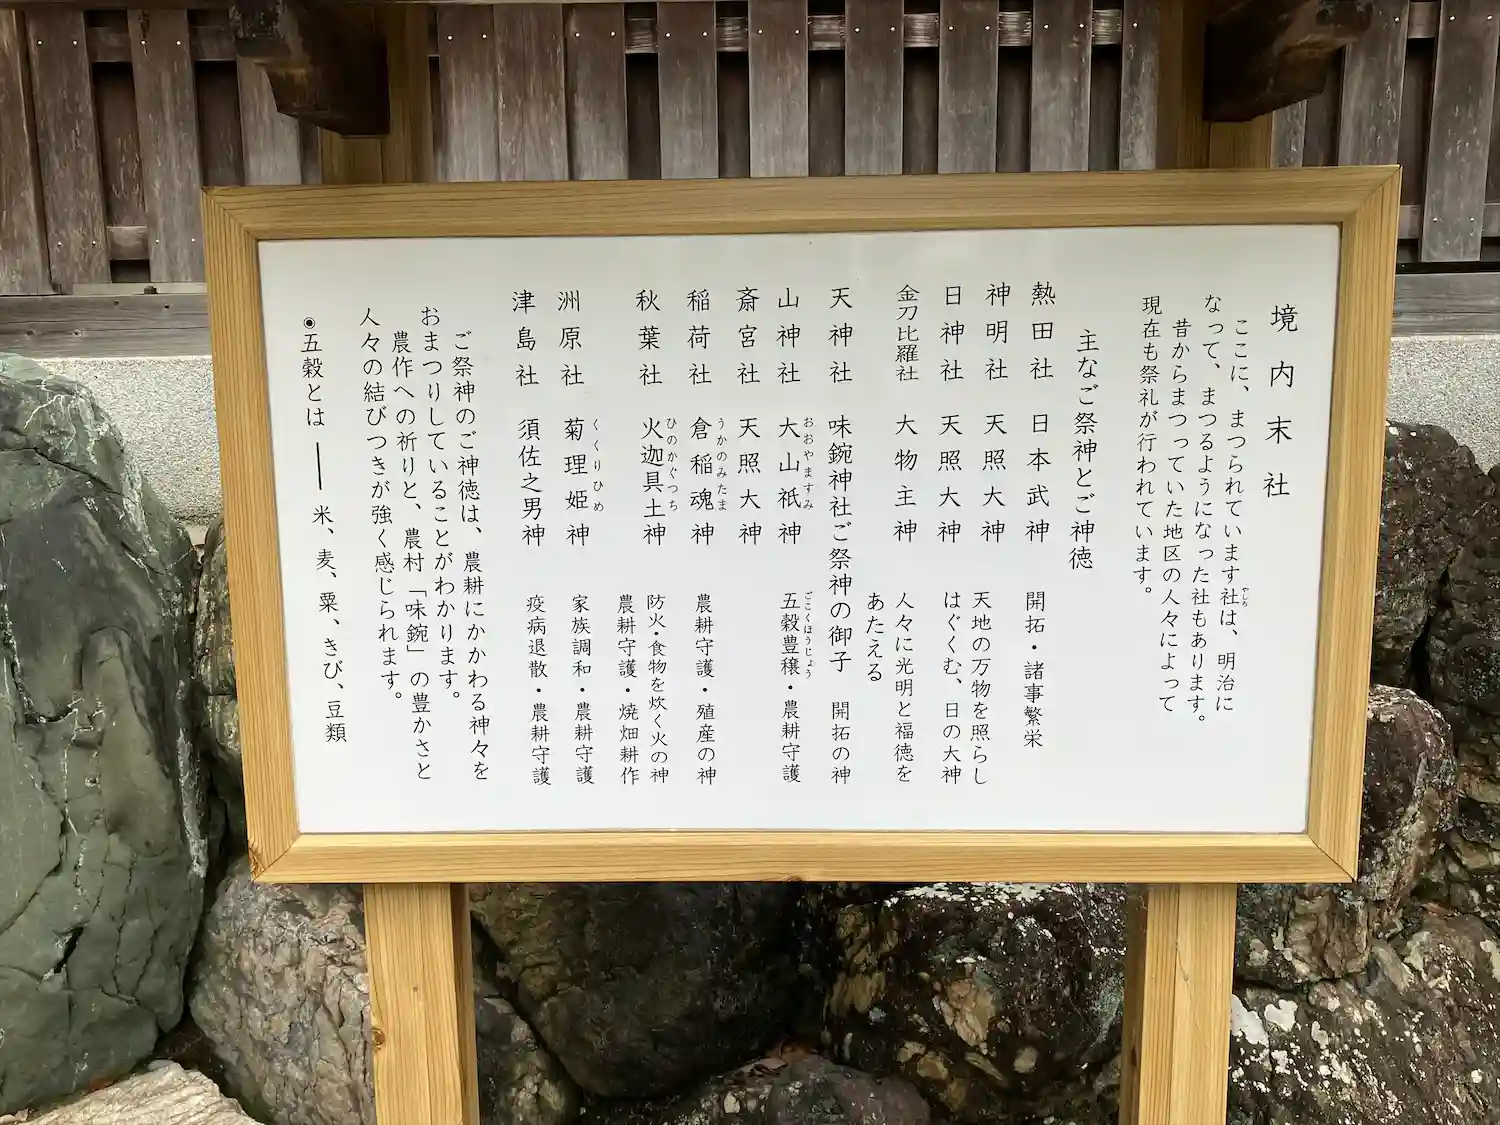 境内末社
ここに、まつられています社は、明治に
やしろ
なって、まつるようになった社もあります。
昔からまつっていた地区の人々によって
現在も祭礼が行われています。
主なご祭神とご神徳
熱田社 日本武神 開拓・諸事繁栄
神明社 天照大神 天地の万物を照らし
日神社 天照大神 はぐくむ、日の大神
金刀比羅社 大物主神 人々に光明と福徳を
あたえる
天神社 味鋺神社ご祭神の御子 開拓の神
山神社 大山祇神 五穀豊穣・農耕守護
おおやますみ ごこくほうじょう
斎宮社 天照大神
稲荷社 倉稲魂神 農耕守護・殖産の神
うかのみたま
秋葉社 火迦具土神 防火・食物を炊く火の神
ひのかぐつち
農耕守護・焼畑耕作
洲原社 菊理姫神 家族調和・農耕守護
くくりひめ
津島社 須佐之男神 疫病退散・農耕守護
ご祭神のご神徳は、農耕にかかわる神々を
おまつりしていることがわかります。
農作への祈りと、農村「味鋺」の豊かさと
人々の結びつきが強く感じられます。
◉五穀とは ── 米、麦、粟、きび、豆類